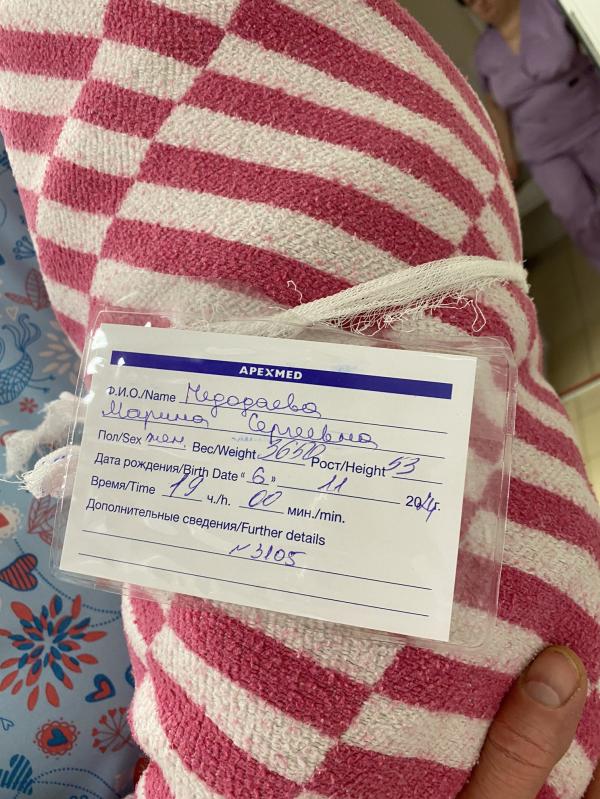 APEXMED
Ф.И.О./Name Чедодаева
Марина Сергеевна
Пол/Sex жен. Вес/Weight 3650 Рост/Height 53
Дата рождения/Birth Date “ 6 ” 11 2024г.
Время/Time 19 ч./h. 00 мин./min.
Дополнительные сведения/Further details
N 3105